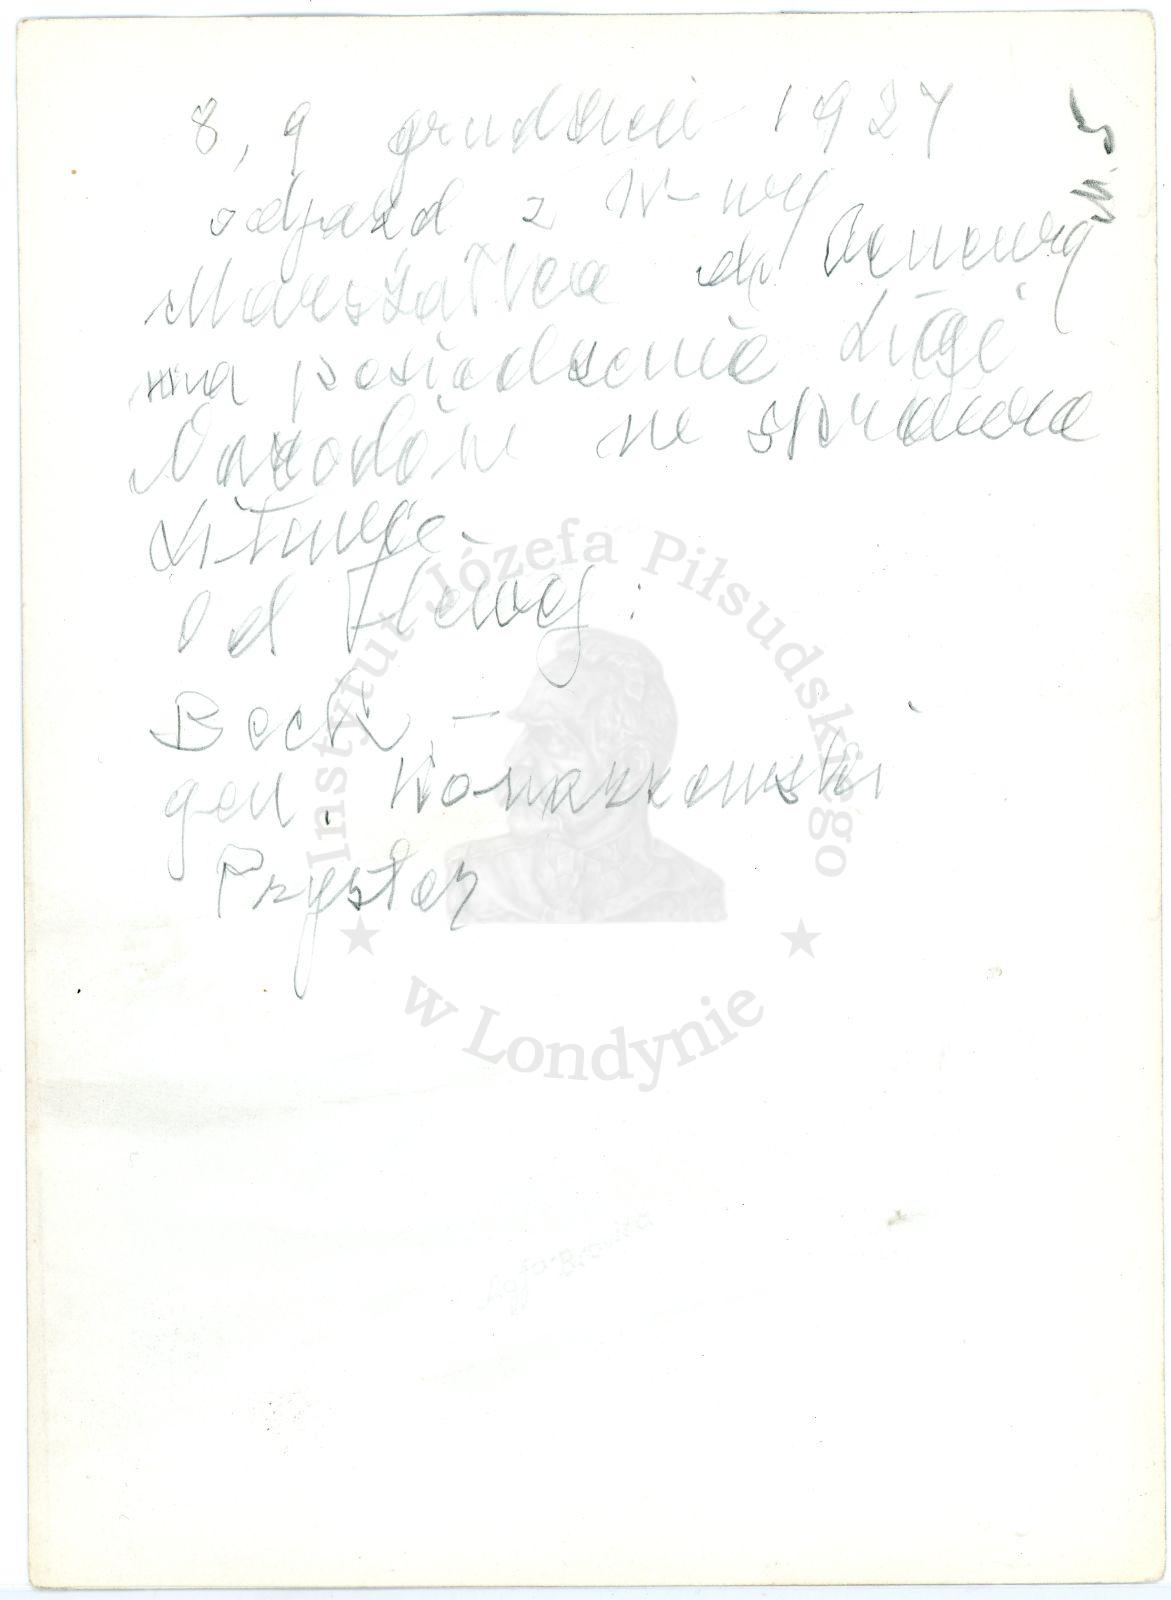 8, 9 grudzień 1927
odjazd z W-wy
Marszałka do Genewy
na posiedzenie Ligi
Narodów w sprawie
Litwy
Od lewej:
Beck, –
gen. Konarzewski
Prystor
Instytut Józefa Piłsudskiego
w Londynie